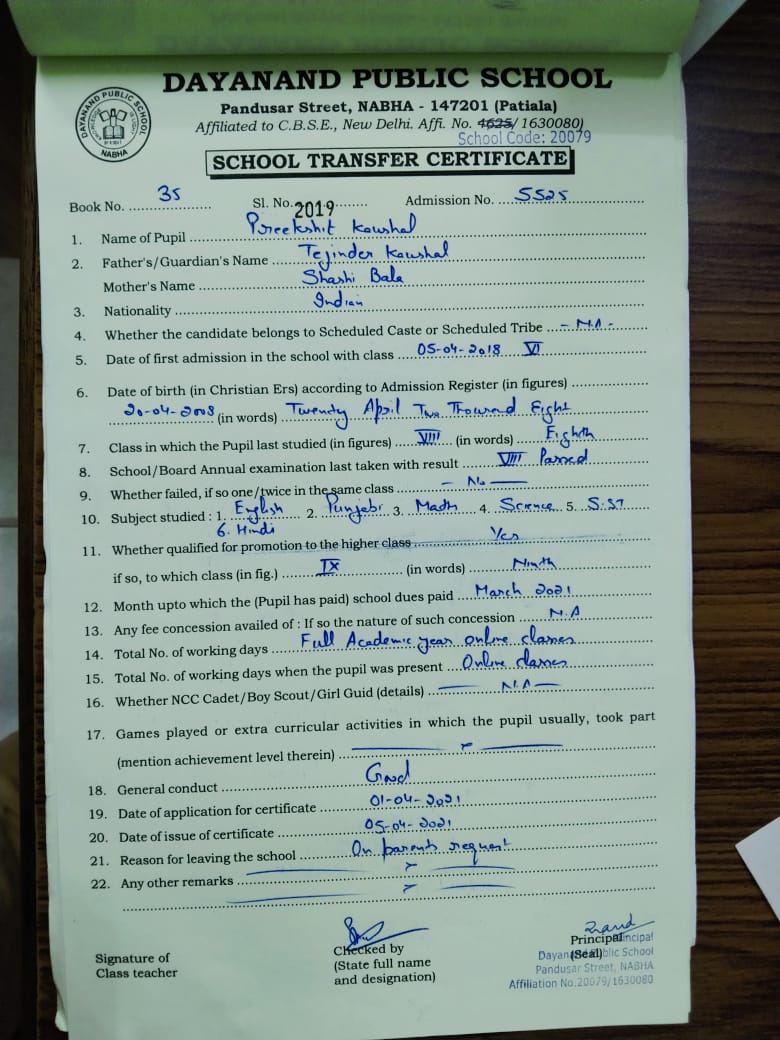 DAYANAND PUBLIC SCHOOL
DAYANAND PUBLIC SCHOOL
NABHA
Pandusar Street, NABHA - 147201 (Patiala)
Affiliated to C.B.S.E., New Delhi. Affi. No. 4625/1630080)
School Code: 20079
SCHOOL TRANSFER CERTIFICATE
Book No. 35 Sl. No. 2019 Admission No. 5525
1. Name of Pupil Preekshit Kaushal
2. Father's/Guardian's Name Tejinder Kaushal
Mother's Name Shashi Bala
3. Nationality Indian
4. Whether the candidate belongs to Scheduled Caste or Scheduled Tribe - N.A -
5. Date of first admission in the school with class 05-04-2018 VI
6. Date of birth (in Christian Ers) according to Admission Register (in figures)
20-04-2008 (in words) Twenty April Two Thousand Eight
7. Class in which the Pupil last studied (in figures) VIII (in words) Eighth
8. School/Board Annual examination last taken with result VIII Passed
9. Whether failed, if so one/twice in the same class - No -
10. Subject studied : 1. English 2. Punjabi 3. Math 4. Science 5. S.ST
6. Hindi
11. Whether qualified for promotion to the higher class Yes
if so, to which class (in fig.) IX (in words) Ninth
12. Month upto which the (Pupil has paid) school dues paid March 2021
13. Any fee concession availed of : If so the nature of such concession N.A
14. Total No. of working days Full Academic year online classes
15. Total No. of working days when the pupil was present Online classes
16. Whether NCC Cadet/Boy Scout/Girl Guid (details) - N.A -
17. Games played or extra curricular activities in which the pupil usually, took part
(mention achievement level therein)
18. General conduct Good
19. Date of application for certificate 01-04-2021
20. Date of issue of certificate 05-04-2021
21. Reason for leaving the school On parents request
22. Any other remarks
Signature of
Class teacher
Checked by
(State full name
and designation)
Principal
(Seal)
Principal
Dayanand Public School
Pandusar Street, NABHA
Affiliation No.20079/1630080